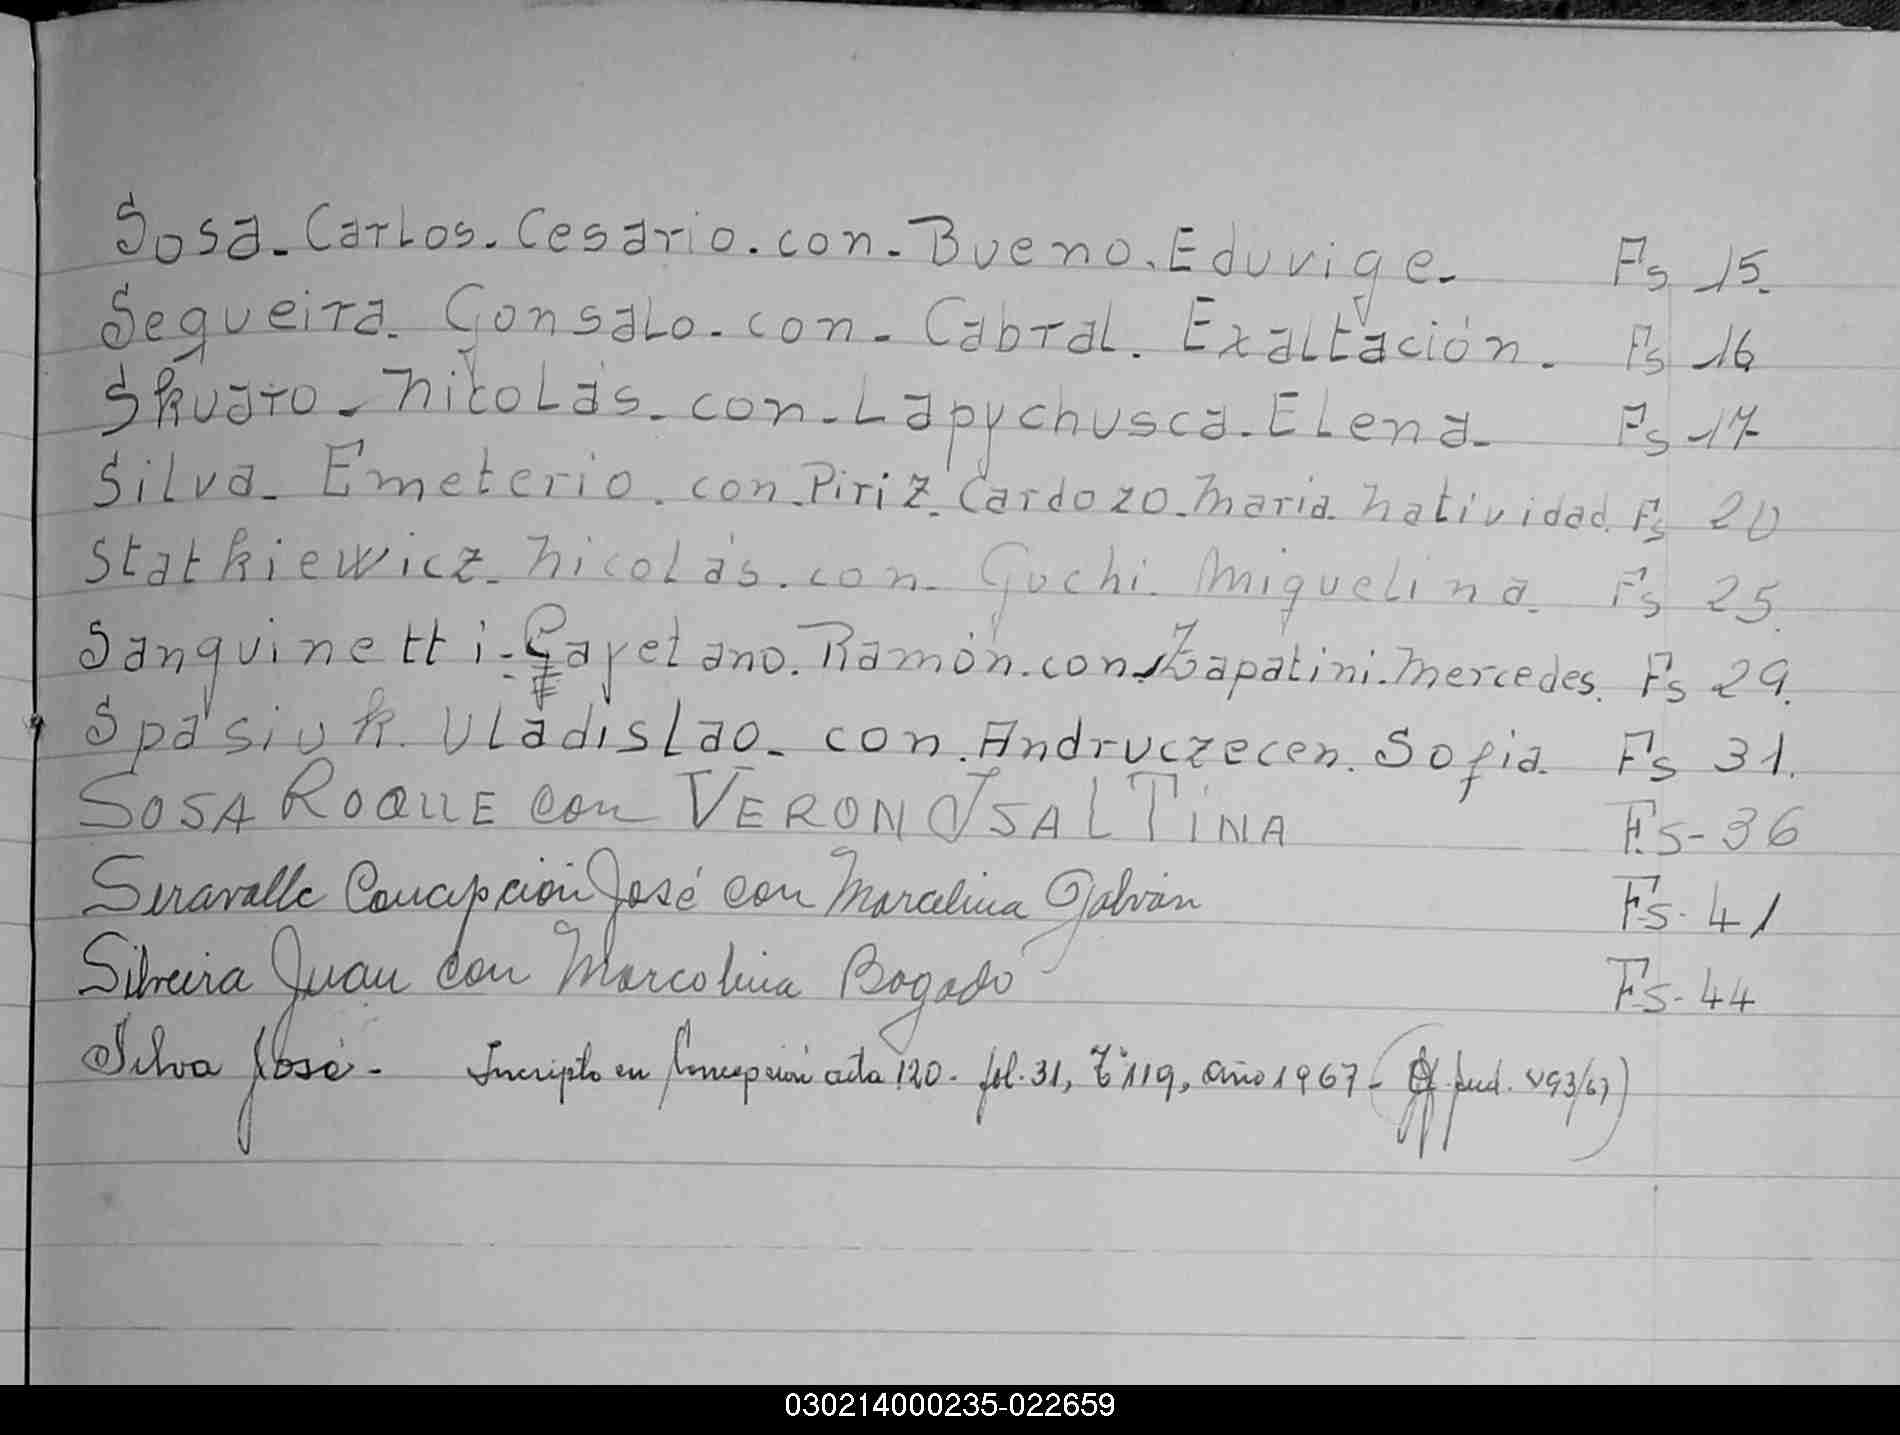 Sosa - Carlos - Cesario - con - Bueno. Eduvige - Fs 15.
Sequeira. Gonsalo - con - Cabral. Exaltación. Fs 16
Skvaro - Nicolás - con - Lapychusca - Elena - Fs 17
Silva - Emeterio. con - Piriz. Cardozo - Maria Natividad. Fs 20
Statkiewicz - Nicolás. con - Guchi. Miguelina. Fs 25.
Sanguinetti - Cayetano. Ramón. con Zapatini. Mercedes. Fs 29.
Spasiuk. Vladislao - con. Andruczecen. Sofia. Fs 31.
SOSA ROQUE con VERON ISALTINA Fs - 36
Seravalle Concepción José con Marcelina Galván Fs - 41
Silveira Juan con Marcolina Bogado Fs - 44
Silva José - Inscripto en Concepción acta 120 - fol. 31, Tº 119, año 1967 -
030214000235-022659